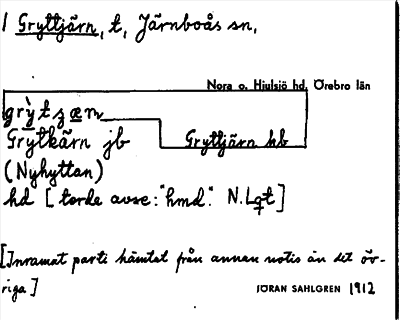 1 Gryttjärn, t, Järnboås sn,
Nora o. Hjulsjö hd. Örebro län
grỳtʒæn
Grytkärn jb Gryttjärn hb
(Nyhyttan)
hd [torde avse: "hmd". N.Lgt]
[Inramat parti hämtat från annan notis än det öv-
riga]
JÖRAN SAHLGREN 1912